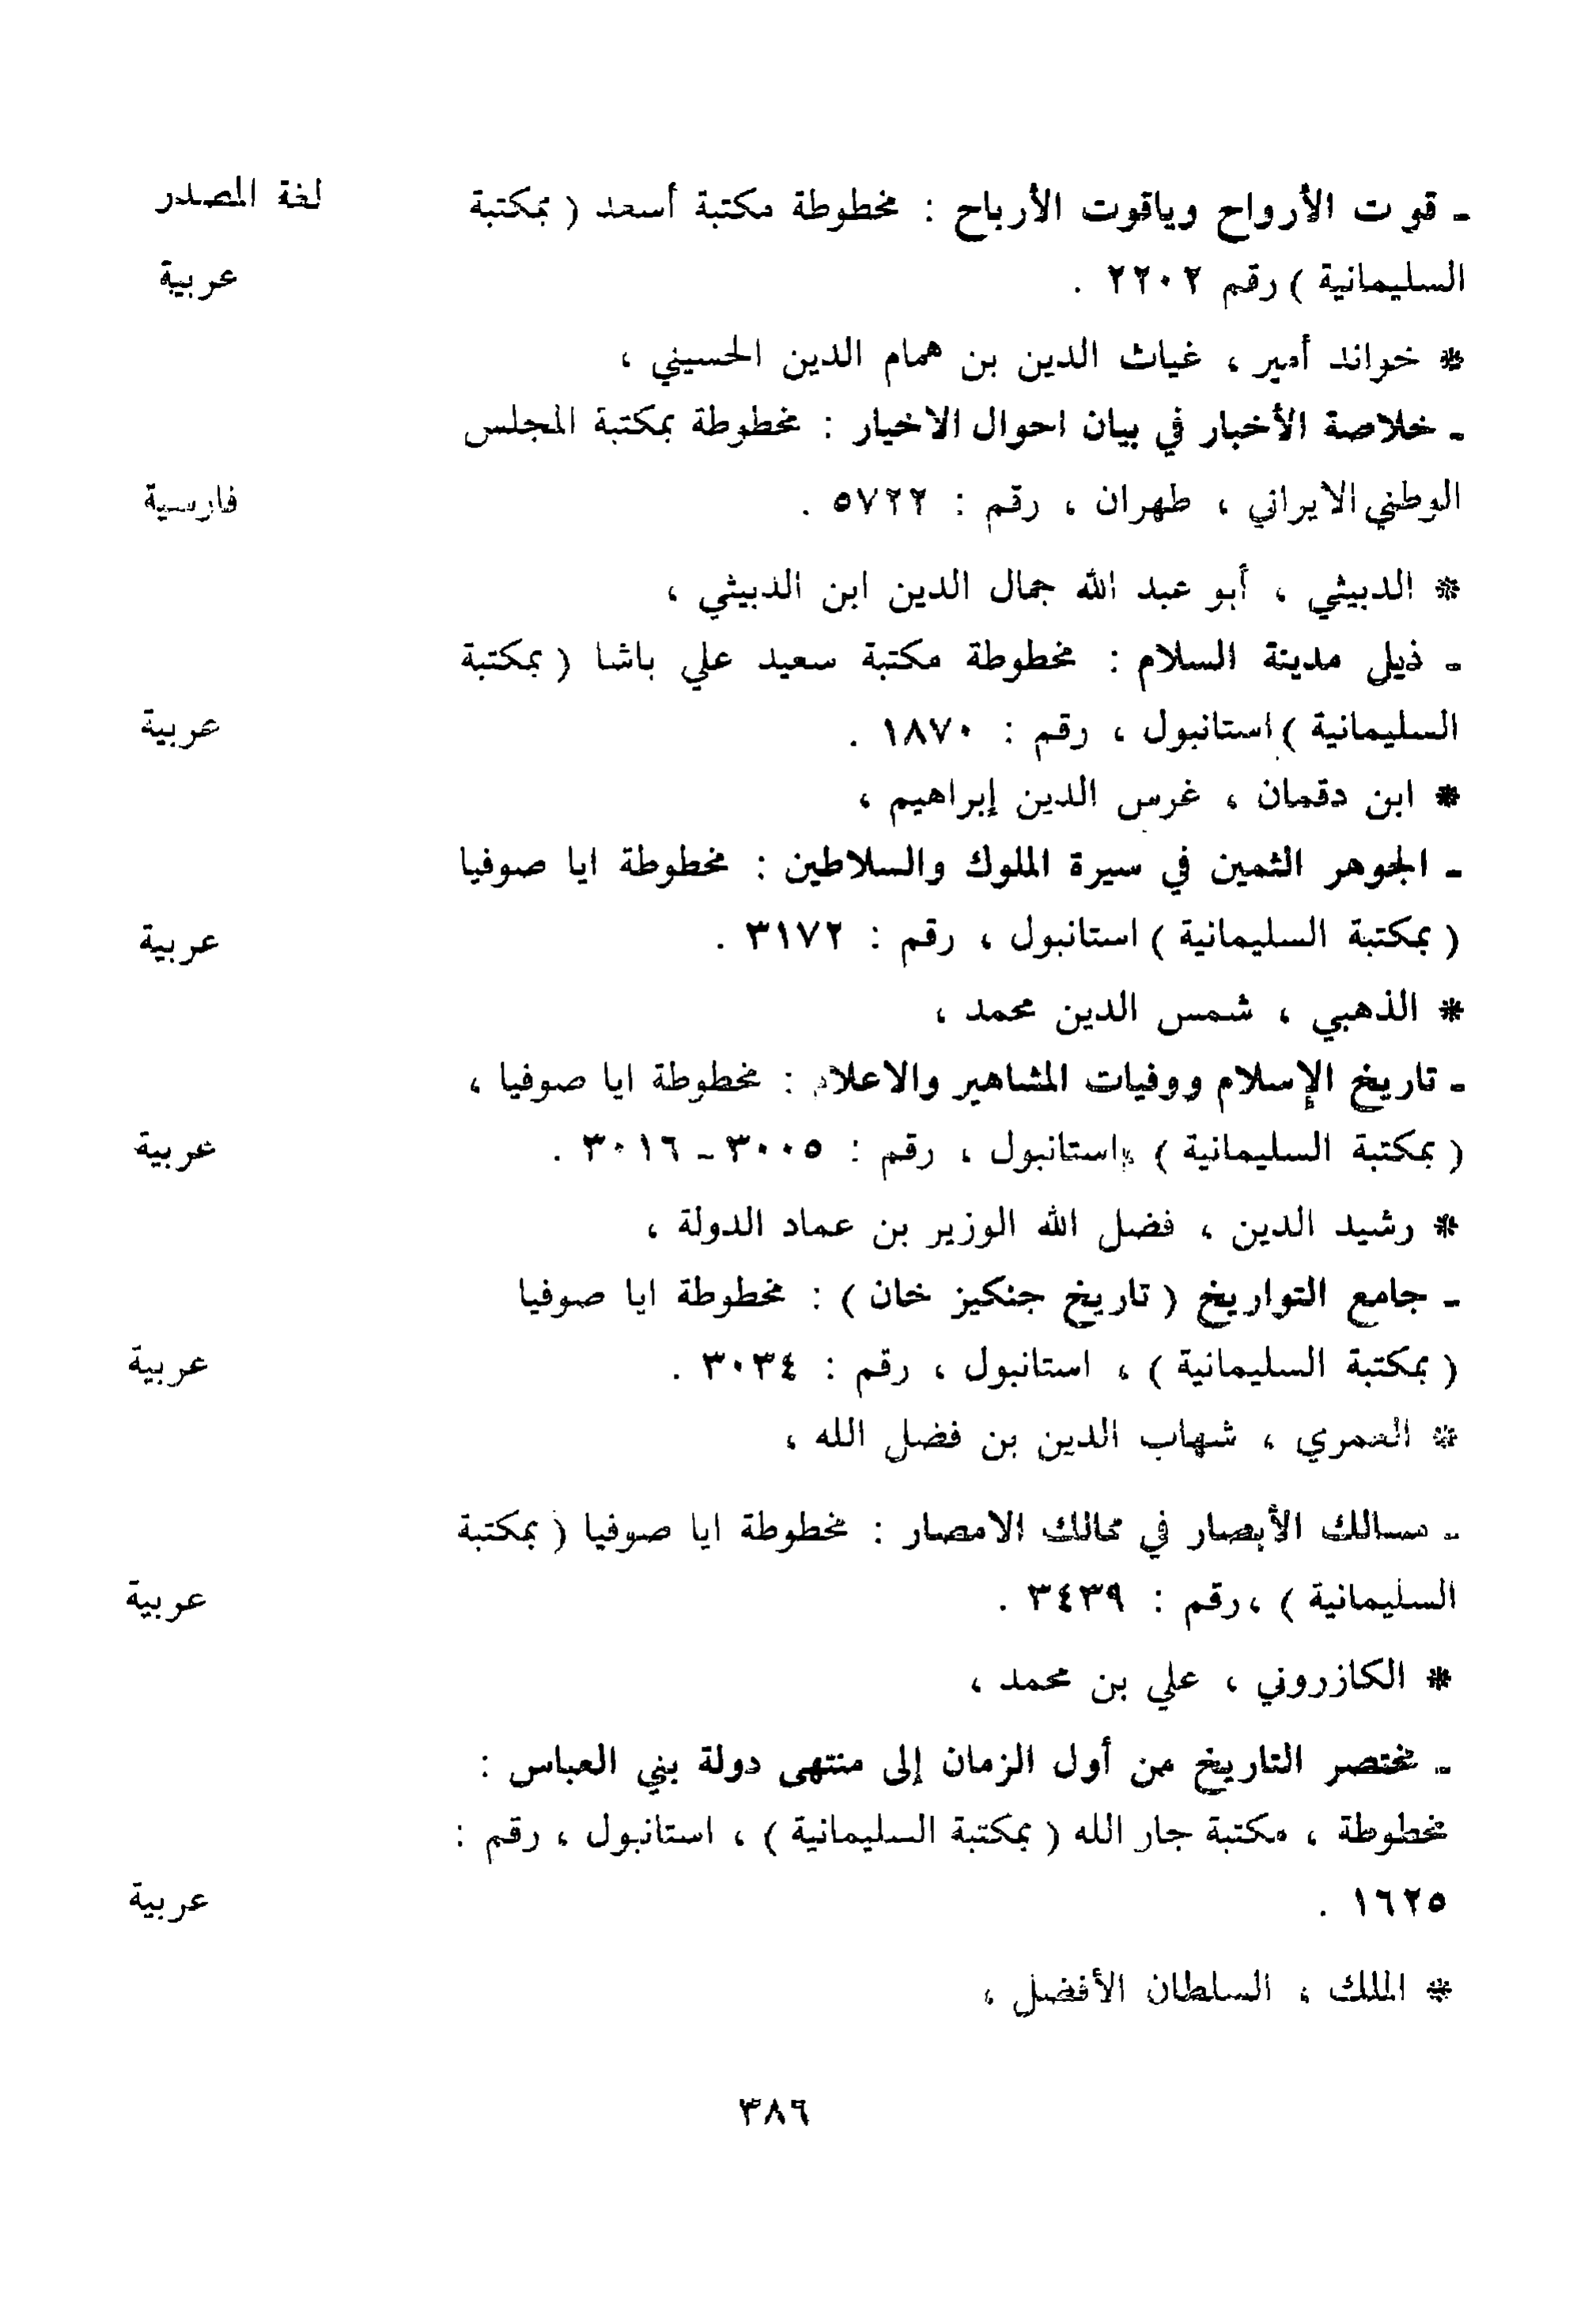 لغة المصدر
ـ قوت الأرواح وياقوت الأرباح : مخطوطة مكتبة أسعد ( بمكتبة
السليمانية ) رقم ٢٢٠٢ .
عربية
* خواند أمير ، غياث الدين بن همام الدين الحسيني ،
ـ خلاصة الأخبار في بيان احوال الاخيار : مخطوطة بمكتبة المجلس
الوطني الايراني ، طهران ، رقم : ٥٧٢٢ .
فارسية
* الدبيثي ، أبو عبد الله جمال الدين ابن الدبيثي ،
ـ ذيل مدينة السلام : مخطوطة مكتبة سعيد علي باشا ( بمكتبة
السليمانية ) استانبول ، رقم : ١٨٧٠ .
عربية
* ابن دقمان ، غرس الدين إبراهيم ،
ـ الجوهر الثمين في سيرة الملوك والسلاطين : مخطوطة ايا صوفيا
( بمكتبة السليمانية ) استانبول ، رقم : ٣١٧٢ .
عربية
* الذهبي ، شمس الدين محمد ،
ـ تاريخ الإسلام ووفيات المشاهير والاعلام : مخطوطة ايا صوفيا ،
( بمكتبة السليمانية ) ، استانبول ، رقم : ٣٠٠٥ ـ ٣٠١٦ .
عربية
* رشيد الدين ، فضل الله الوزير بن عماد الدولة ،
ـ جامع التواريخ ( تاريخ جنكيز خان ) : مخطوطة ايا صوفيا
( بمكتبة السليمانية ) ، استانبول ، رقم : ٣٠٣٤ .
عربية
* العمري ، شهاب الدين بن فضل الله ،
ـ مسالك الأبصار في ممالك الامصار : مخطوطة ايا صوفيا ( بمكتبة
السليمانية ) ، رقم : ٣٤٣٩ .
عربية
* الكازروني ، علي بن محمد ،
ـ مختصر التاريخ من أول الزمان إلى منتهى دولة بني العباس :
مخطوطة ، مكتبة جار الله ( بمكتبة السليمانية ) ، استانبول ، رقم :
١٦٢٥ .
عربية
* الملك ، السلطان الأفضل ،
٣٨٦